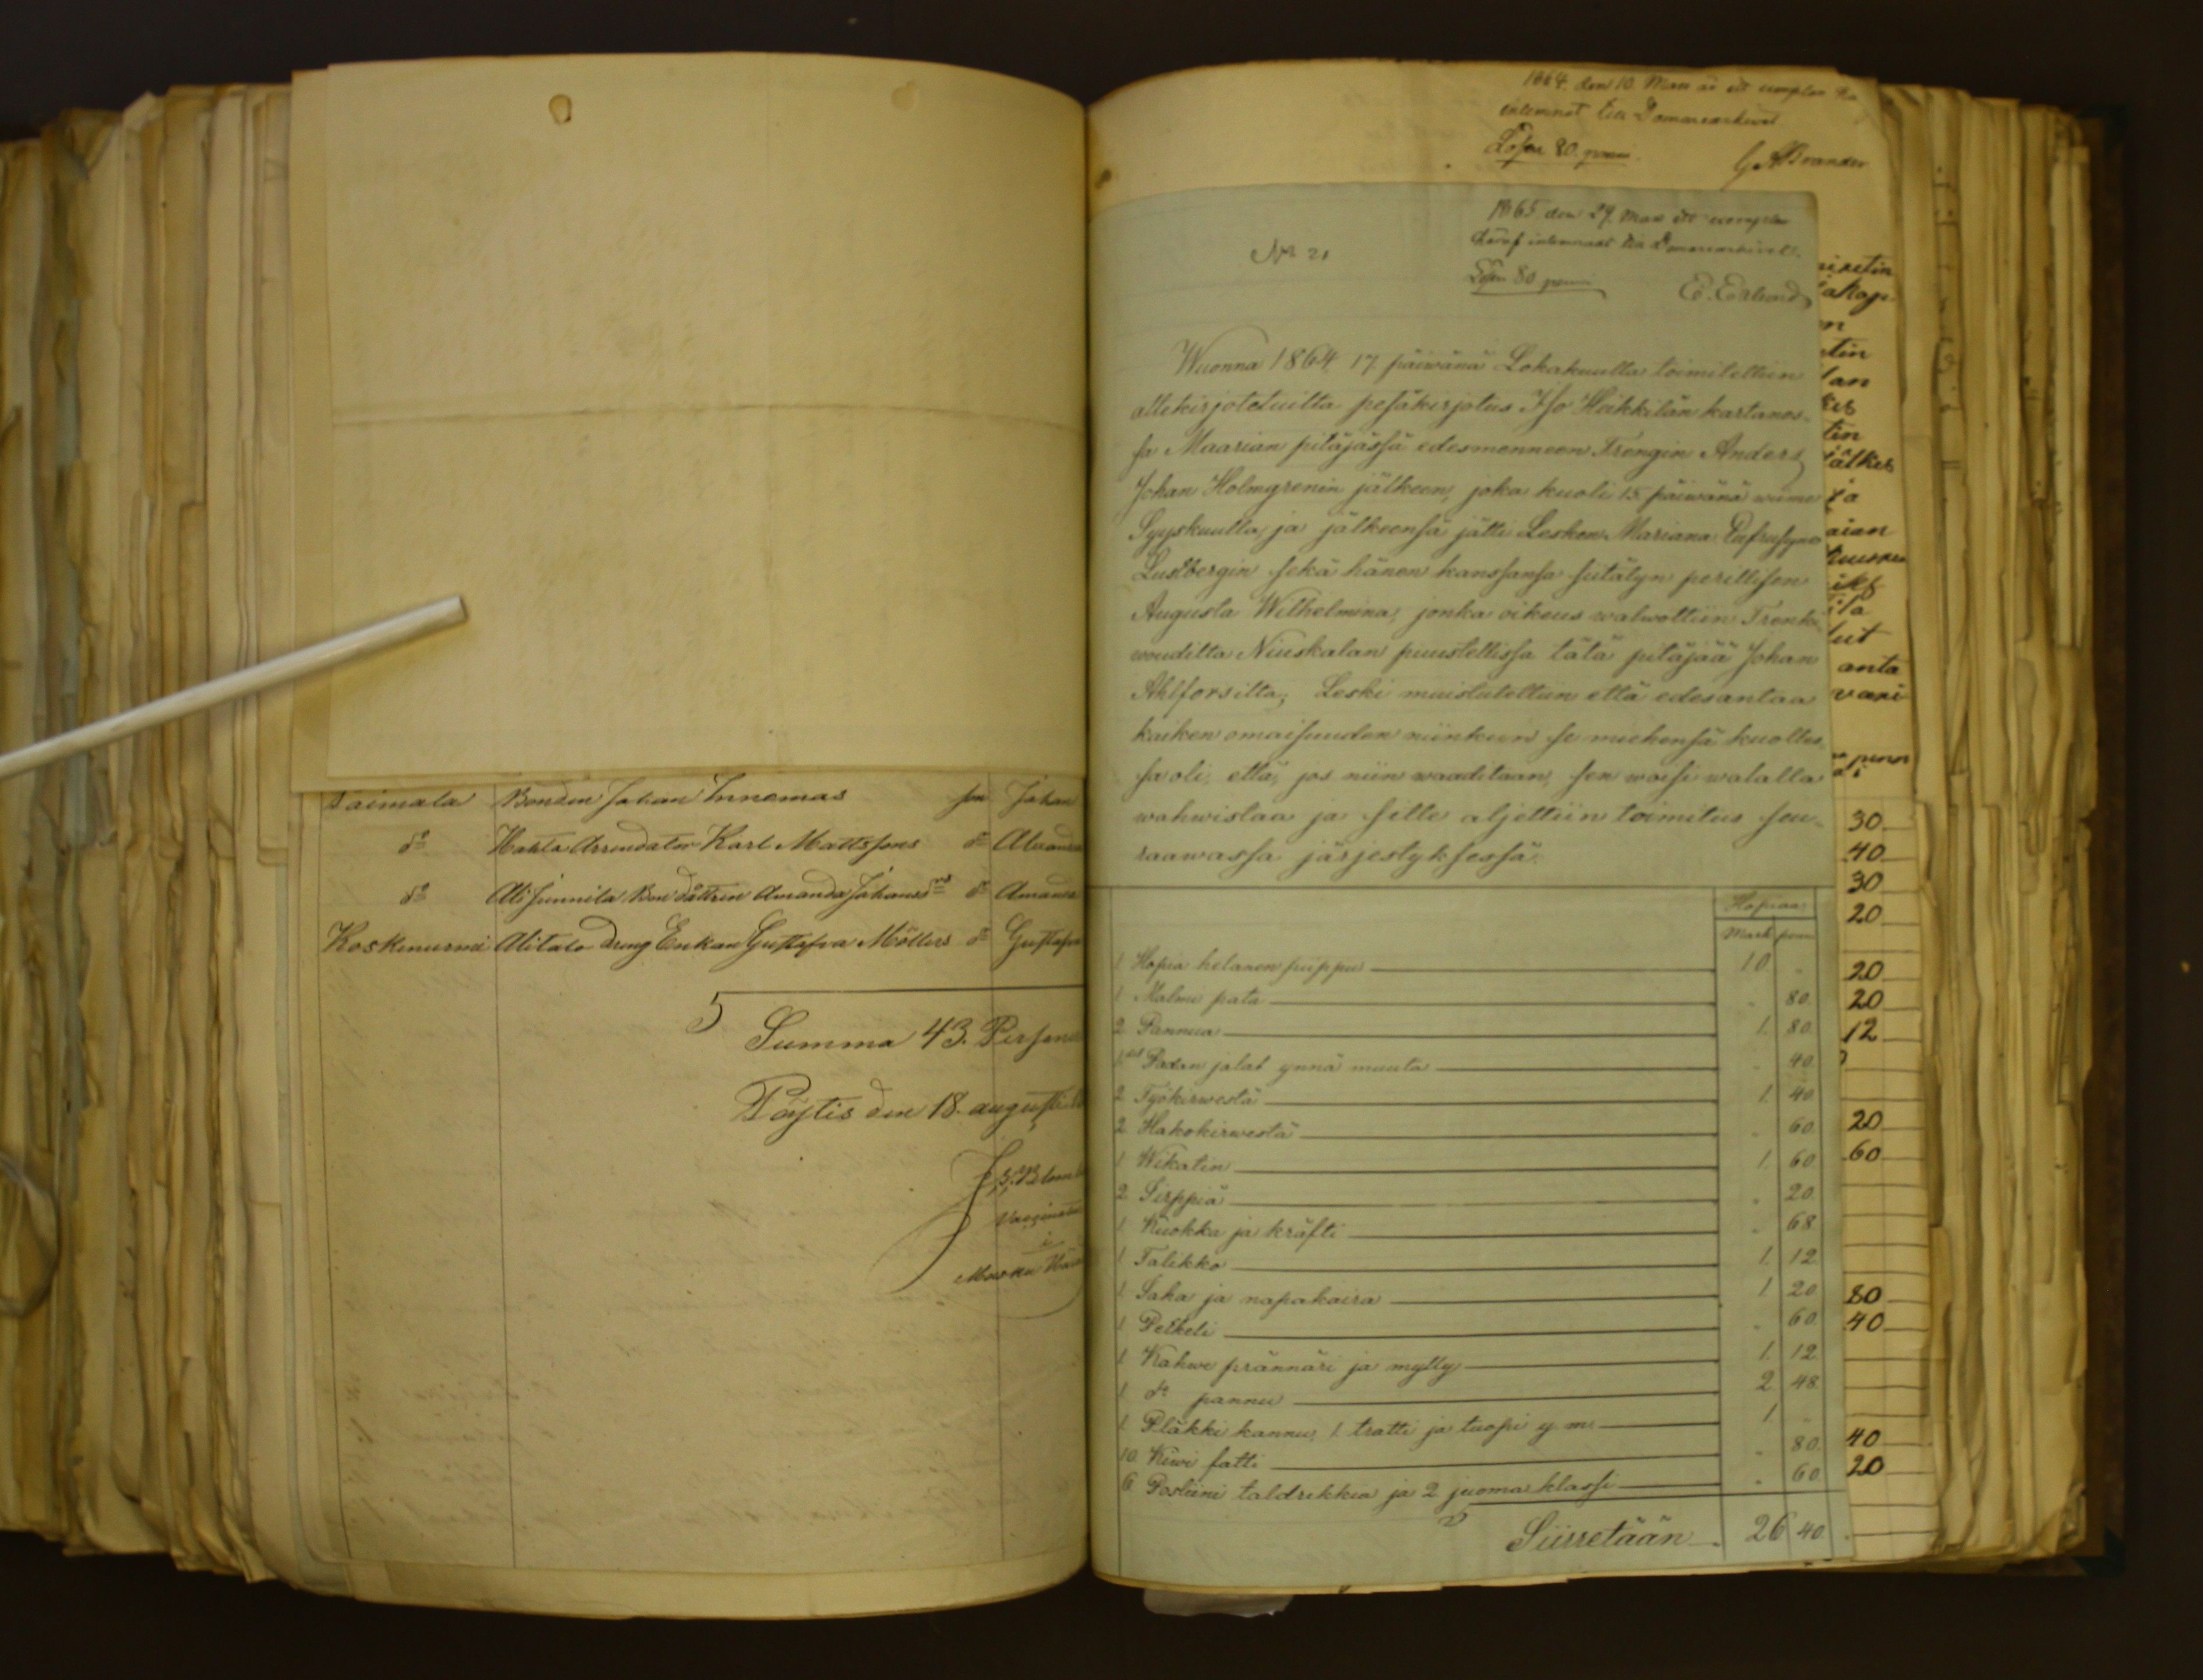 Taimala Bonden Johan Innomas son Johan
do Hakta Arrendator Karl Mattssons do
do Ali Junnila Bondåttren Amanda Johansd do Amanda
Koskinurmi Alitalo dreng Enkan Gustafva Möllers do Gustafva
Summa 43. Personer
Pöytis den 18. augusti
i
1864. den 10. Mars är ett exemplar
inlemnat till Domarearkivet
Lösen 80. penni.
G A Brander
No 21
1865 den 29. Mars ett exemplar
häraf inlemnat till Domarearkivet.
Lösen 80 penni
E. Eklund
Wuonna 1864, 17. päiwänä Lokakuulta toimitettiin
allekirjoteluilta pesäkirjotus Iso Heikkilän kartanos-
sa Maarian pitäjässä edesmenneen Trengin Anders
Johan Holmgrenin jälkeen, joka kuoli 15. päiwänä wiime
Syyskuulla, ja jälkeensä jätti Lesken Mariana
Lustbergin sekä hänen kanssansa siitätyn perillisen
Augusta Wilhelmina, jonka oikeus walwottiin Trenki
wouditta Niuskalan puustellissa tätä pitäjää Johan
Ahlforsilta; Leski muistutettiin että edesantaa
kaiken omaisuuden niinkuin se miehensä kuolles-
sa oli, että, jos niin waaditaan, sen woisi walalla
wahwistaa ja sille aljettiin toimitus seu-
raawassa järjestyksessä.
Hopiaa
Mark penni
1 Hopia helanen piippu 10 "
1 Malmi pata " 80.
2 Pannua 1. 80.
1 st Padan jalat ynnä muuta " 40.
2 Työkirwestä 1. 40.
2 Hakokirwestä " 60.
1 Wikatin 1. 60.
2 Sirppiä " 20.
1 Kuokka ja kräfti " 68.
1 Talikko 1. 12.
1 Saha ja napakaira 1 20
1 Petkeli " 60.
1 Kahwe prännäri ja mylly 1. 12
1 do pannu 2 48
1 Pläkki kannu, 1. tratti ja tuopi y. m. 1 "
10 Kiwi fatti " 80.
6 Posliini taldrikkia ja 2 juoma klassi " 60.
Siirretään 26 40.
anta
30
40
30
20
20
20
12
20
60
80
40
40
20